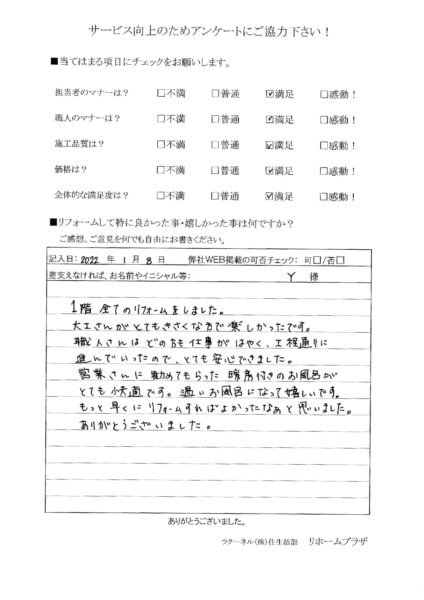 サービス向上のためアンケートにご協力下さい！
■当てはまる項目にチェックをお願いします。
担当者のマナーは？ □不満 □普通 ☑満足 □感動！
職人のマナーは？ □不満 □普通 ☑満足 □感動！
施工品質は？ □不満 □普通 ☑満足 □感動！
価格は？ □不満 □普通 ☑満足 □感動！
全体的な満足度は？ □不満 □普通 ☑満足 □感動！
■リフォームして特に良かった事・嬉しかった事は何ですか？
ご感想、ご意見を何でも自由にお書きください。
記入日：2022 年 1月 8日 弊社WEB掲載の可否チェック：可□/否□
差支えなければ、お名前やイニシャル等： Y 様
1階全てのリフォームをしました。
大工さんがとてもきさくな方で楽しかったです。
職人さんはどの方も仕事がはやく、工程通りに
進んでいったので、とても安心できました。
営業さんに勧めてもらった暖房付きのお風呂が
とても快適です。温いお風呂になって嬉しいです。
もっと早くにリフォームすればよかったなぁと思いました。
ありがとうございました。
ありがとうございました。
ラクーネル(株)住生活部 リホームプラザ